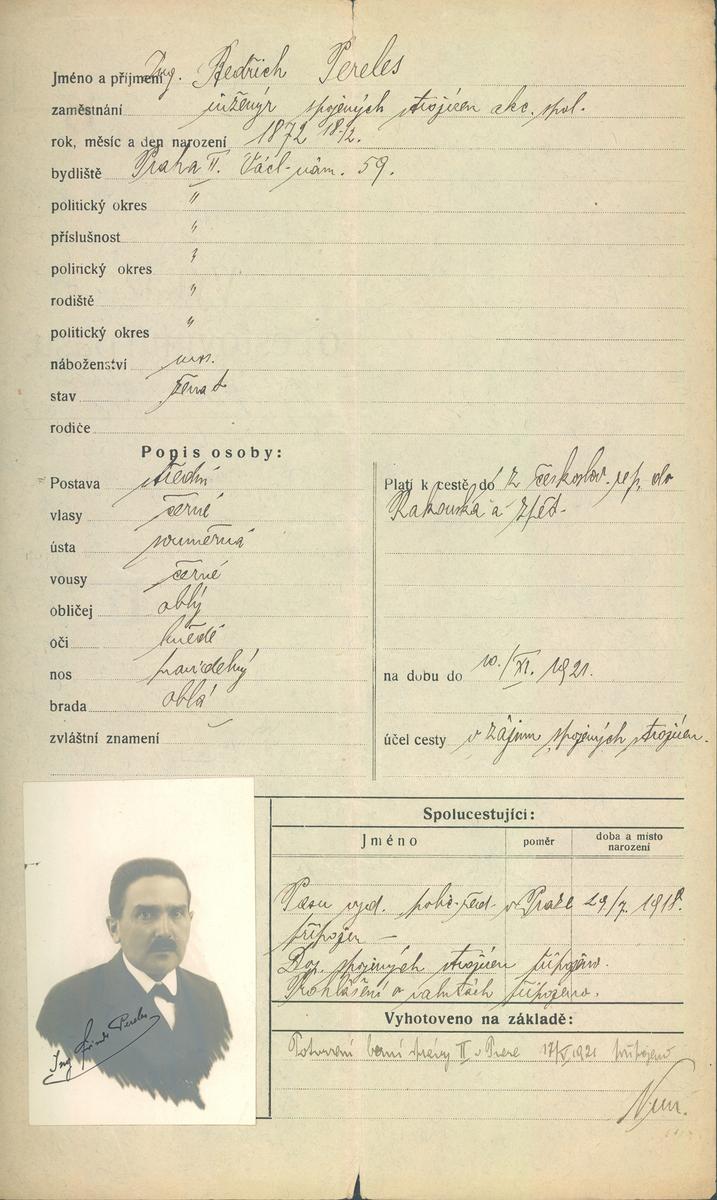 Jméno a příjmení Ing. Bedřich Pereles
zaměstnání inženýr spojených strojíren akc. spol.
rok, měsíc a den narození 1872 18/2.
bydliště Praha II. Václ. nám. 59.
politický okres "
příslušnost "
politický okres "
rodiště "
politický okres "
náboženství
stav ženat
rodiče
Popis osoby:
Postava střední
vlasy černé
ústa souměrná
vousy černé
obličej oblý
oči hnědé
nos pravidelný
brada oblá
zvláštní znamení
Platí k cestě do z českoslov. rep. do
Rakouska a zpět.
na dobu do 10./XI. 1921.
účel cesty v zájmu spojených strojíren.
Spolucestující:
Jméno poměr doba a místo narození
Pasu vyd. polic. řed. v Praze 29/7. 1918.
připojen —
Dop. spojených strojíren připojen.
Prohlášení o valutách připojeno.
Vyhotoveno na základě:
Potvrzení berní správy II v Praze 1921 připojeno
Ing. Pereles